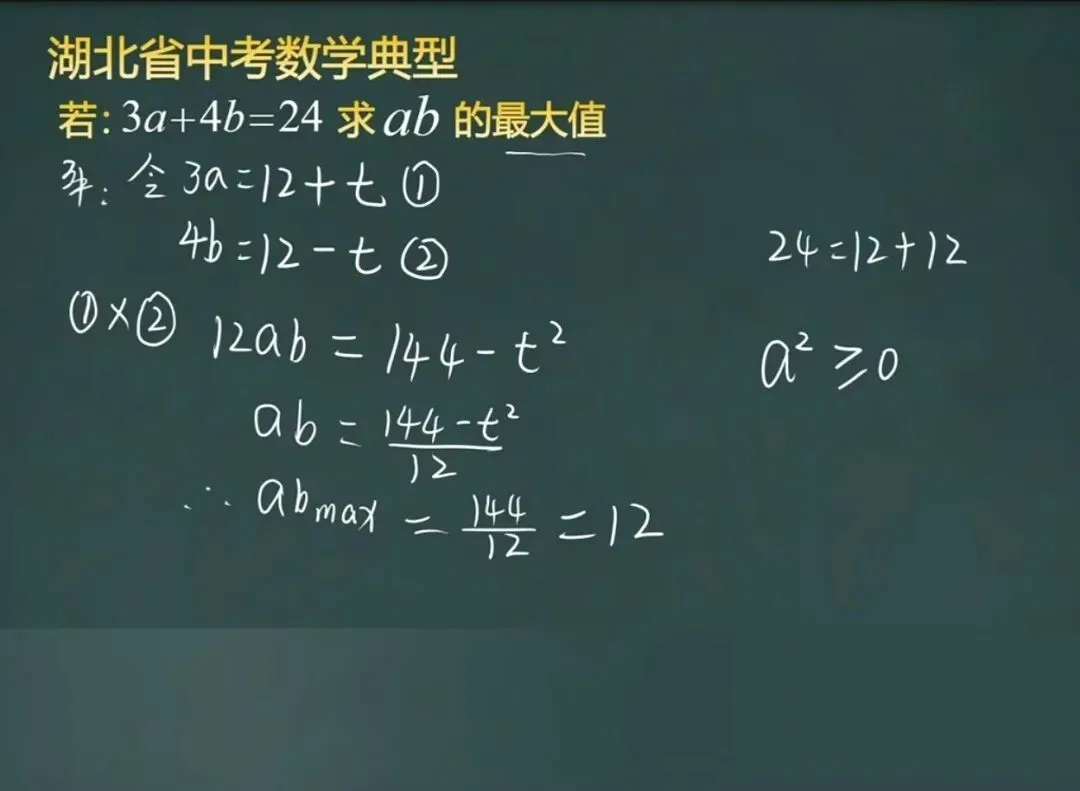 湖北省中考数学典型
若: 3a+4b=24 求 ab 的最大值
解: 令 3a=12+t ①
4b=12-t ②
24=12+12
①×② 12ab=144-t²
a²≥0
ab=\frac{144-t²}{12}
∴ab_{max}=\frac{144}{12}=12